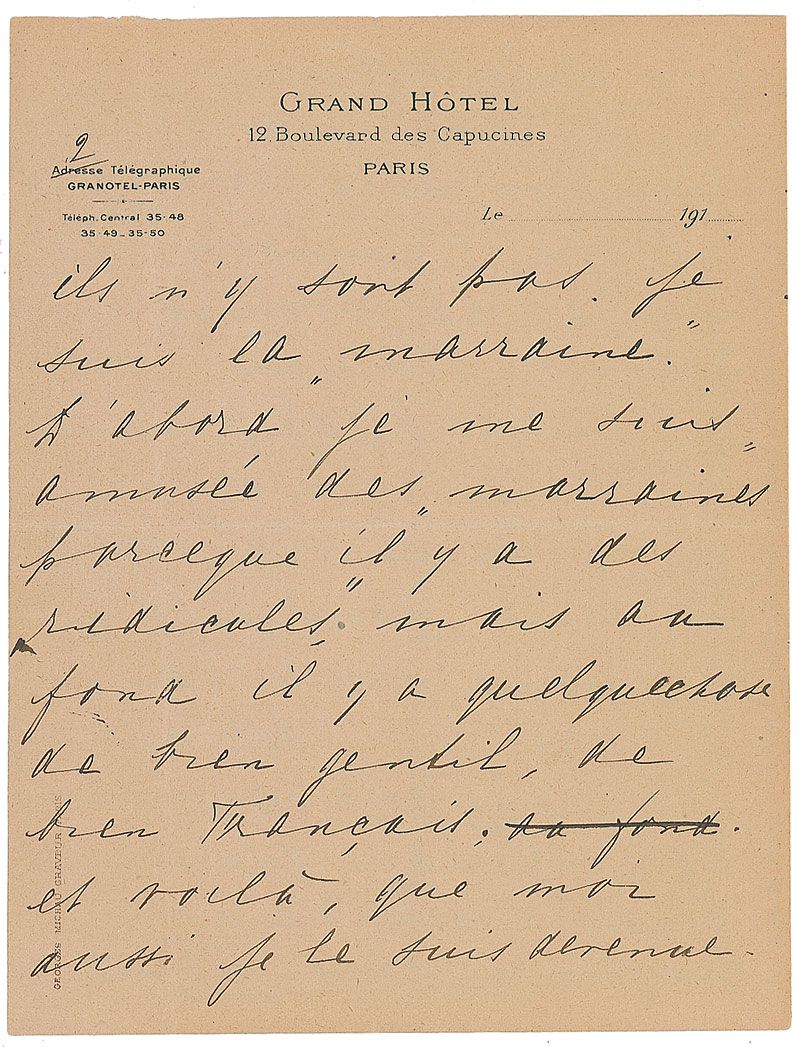 GRAND HÔTEL
12, Boulevard des Capucines
PARIS
2
Adresse Télégraphique
GRANOTEL-PARIS
Téléph. Central 35-48
35-49_35-50
Le 191
ils n'y sont pas. je
suis la „marraine."
D'abord je me suis
amusée des „marraines"
parceque il y a des
ridicules", mais au
fond il y a quelquechose
de bien gentil, de
bien Français; ~~au fond~~.
et voilà, que moi
aussi je le suis devenue.
GEORGES MICHAU GRAVEUR PARIS